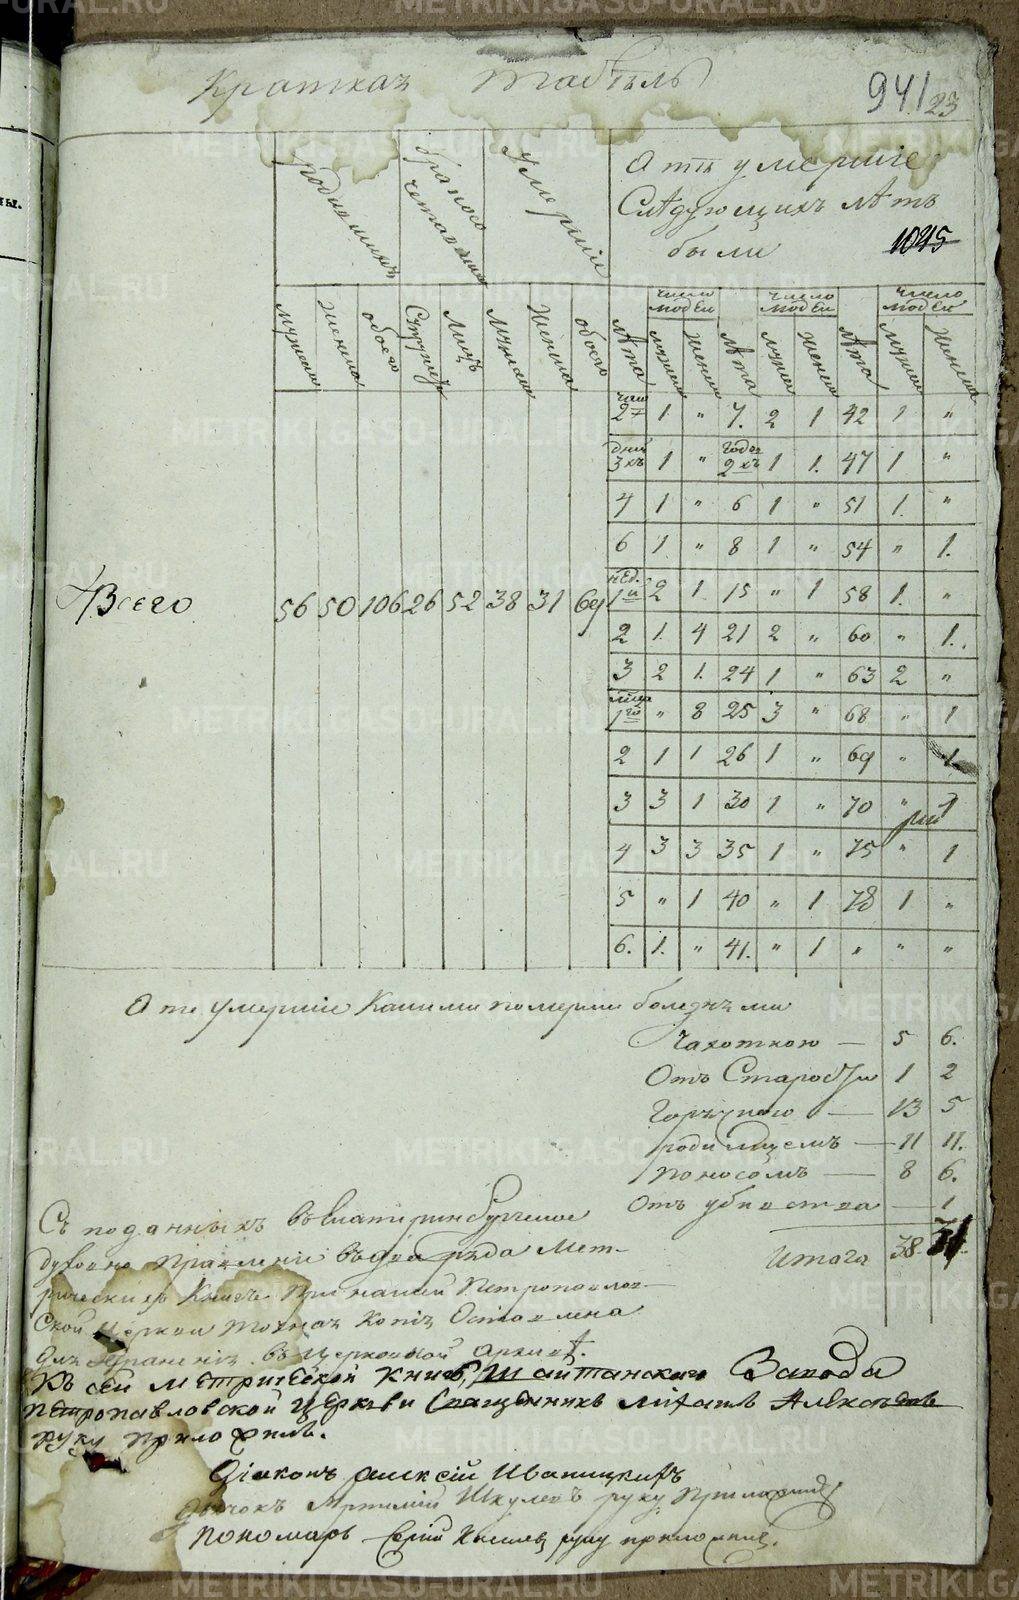 Краткая табель 941 23
родившихъ
бракосочетавшихъ
умершiе
А тѣ умершiе
Слѣдующихъ лѣтъ
были 1045
мужеска женска обоего Супружествъ Лицъ Мужеска Женска обоего лѣта
число людей число людей число людей
мужеска женска лѣта мужеска женска лѣта мужеска женска
час 2 1. " 7. 2 1 42 1 "
дней 3хъ 1 " Года 2хъ 1 1. 47 1 "
4 1 " 6 1 " 51 1. "
6 1. " 8 1 " 54 " 1.
Всего 56 50 106 26 52 38 31 69
нед. 1й 2 1 15 " 1 58 1. "
2 1. 4 21 2 " 60 " 1.
3 2 1. 24 1 " 63 2 "
мѣца 1го " 8 25 3 " 68 " 1
2 1 1 26 1 " 69 " 1
3 3 1 30 1 " 70 " 1
4 3 3 35 1 " 75 " 1
5 " 1 40 " 1 78 1 "
6. 1. " 41. " 1 " " "
А те умершiе Какими померли болезньми
Чахоткою — 5 6.
Отъ Старости 1 2
Горячкою — 13 5
родимцемъ — 11 11.
поносомъ — 8 6.
Отъ убивства — 1
Итого 38. 31
Съ поданныхъ въ Екатеринбургское
духовно Правленiе въ два ряда Мет-
рическихъ Книгъ При нашей Петропавлов-
ской Церкви точная копiя Оставлена
для Храненiя въ церковной архивѣ.
Къ сей метрической книгѣ, Шайтанскаго Завода
петропавловской Церкви Священникъ Михаилъ Алексѣевъ
руку приложилъ.
Дiаконъ Алексiй Иваницкихъ
дьячокъ Артемiй Шкулевъ руку Приложилъ
пономарь руку приложилъ.